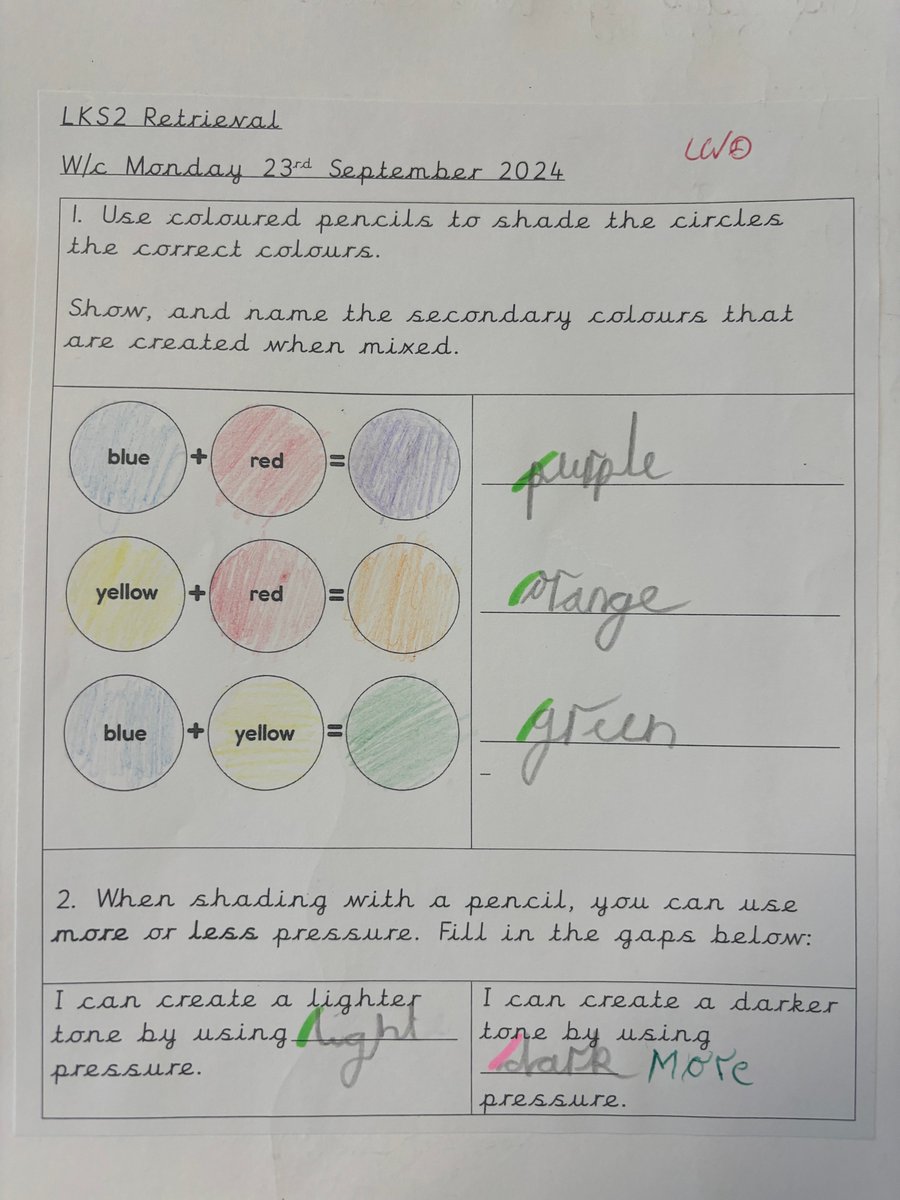 LKS2 Retrieval
W/c Monday 23rd September 2024
1. Use coloured pencils to shade the circles
the correct colours.
Show, and name the secondary colours that
are created when mixed.
blue + red = purple
yellow + red = orange
blue + yellow = green
2. When shading with a pencil, you can use
more or less pressure. Fill in the gaps below:
I can create a lighter
tone by using light
pressure.
I can create a darker
tone by using
dark More
pressure.